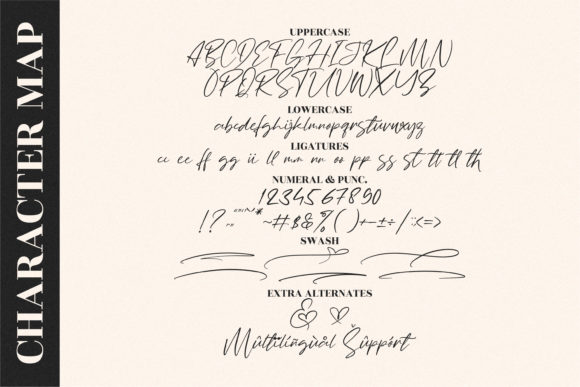 CHARACTER MAP
UPPERCASE
ABCDEFGHIJKLMN
OPQRSTUVWXYZ
LOWERCASE
abcdefghijklmnopqrstuvwxyz
LIGATURES
cc ee ff gg ii ll mm nn oo pp ss st tt tl th
NUMERAL & PUNC.
1234567890
~#$&%()+-±÷/:<=>
SWASH
EXTRA ALTERNATES
&
Mûltilíngùàl Šûppórt